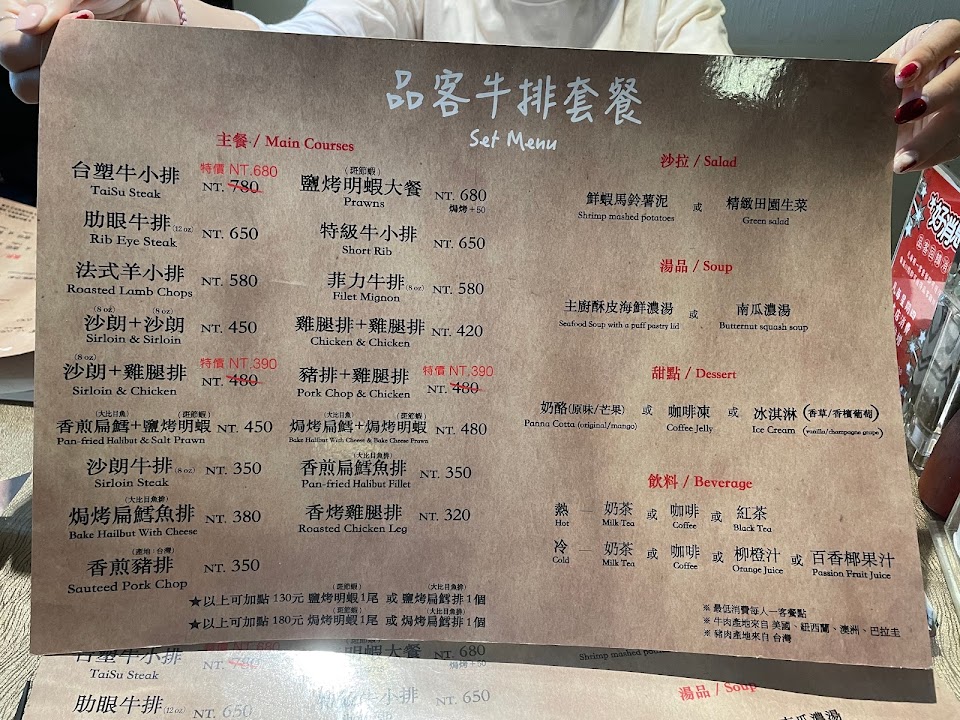 品客牛排套餐
Set Menu
主餐 / Main Courses
台塑牛小排 特價 NT.680
TaiSu Steak NT. 780
肋眼牛排(12 oz) NT. 650
Rib Eye Steak
法式羊小排 NT. 580
Roasted Lamb Chops
(8 oz) (8 oz)
沙朗+沙朗 NT. 450
Sirloin & Sirloin
(8 oz)
沙朗+雞腿排 特價 NT.390
Sirloin & Chicken NT. 480
(大比目魚) (斑節蝦)
香煎扁鱈+鹽烤明蝦 NT. 450
Pan-fried Halibut & Salt Prawn
沙朗牛排(8 oz) NT. 350
Sirloin Steak
(大比目魚排)
焗烤扁鱈魚排 NT. 380
Bake Hailbut With Cheese
(產地:台灣)
香煎豬排 NT. 350
Sauteed Pork Chop
(斑節蝦)
鹽烤明蝦大餐 NT. 680
Prawns 焗烤+50
特級牛小排 NT. 650
Short Rib
菲力牛排(8 oz) NT. 580
Filet Mignon
雞腿排+雞腿排 NT. 420
Chicken & Chicken
豬排+雞腿排 特價 NT.390
Pork Chop & Chicken NT. 480
(大比目魚) (斑節蝦)
焗烤扁鱈+焗烤明蝦 NT. 480
Bake Halibut With Cheese & Bake Cheese Prawn
(大比目魚排)
香煎扁鱈魚排 NT. 350
Pan-fried Halibut Fillet
香烤雞腿排 NT. 320
Roasted Chicken Leg
(斑節蝦) (大比目魚排)
★以上可加點 130元 鹽烤明蝦1尾 或 鹽烤扁鱈排1個
(斑節蝦) (大比目魚排)
★以上可加點 180元 焗烤明蝦1尾 或 焗烤扁鱈排1個
沙拉 / Salad
鮮蝦馬鈴薯泥 或 精緻田園生菜
Shrimp mashed potatoes Green salad
湯品 / Soup
主廚酥皮海鮮濃湯 或 南瓜濃湯
Seafood Soup with a puff pastry lid Butternut squash soup
甜點 / Dessert
奶酪(原味/芒果) 或 咖啡凍 或 冰淇淋 (香草/香檳葡萄)
Panna Cotta (original/mango) Coffee Jelly Ice Cream (vanilla/champagne grape)
飲料 / Beverage
熱 — 奶茶 或 咖啡 或 紅茶
Hot Milk Tea Coffee Black Tea
冷 — 奶茶 或 咖啡 或 柳橙汁 或 百香椰果汁
Cold Milk Tea Coffee Orange Juice Passion Fruit Juice
※ 最低消費每人一客餐點
※ 牛肉產地來自 美國、紐西蘭、澳洲、巴拉圭
※ 豬肉產地來自 台灣
台塑牛小排 NT. 780
TaiSu Steak
肋眼牛排(12 oz) NT. 650
鹽烤明蝦大餐 NT. 680
焗烤+50
特級牛小排 NT. 650
湯品 / Soup
南瓜濃湯